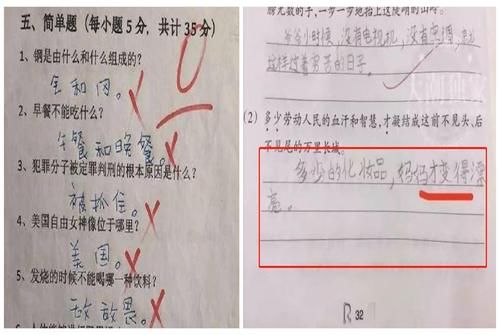 五、简单题（每小题5分，共计35分）
0
1、钢是由什么和什么组成的？
金和冈。
2、早餐不能吃什么？
午餐和晚餐。
3、犯罪分子被定罪判刑的根本原因是什么？
被抓住。
4、美国自由女神像位于哪里？
美国。
5、发烧的时候不能喝哪一种饮料？
敌敌畏。
膀无数的手，一步一步地抬上这陡峭的山岭。
爷爷小时候，没有电视机，没有空调，
这样过着穷苦的日子。
（2）多少劳动人民的血汗和智慧，才凝结成这前不见头、后
不见尾的万里长城。
多少的化妆品，妈妈才变得漂
亮。
32